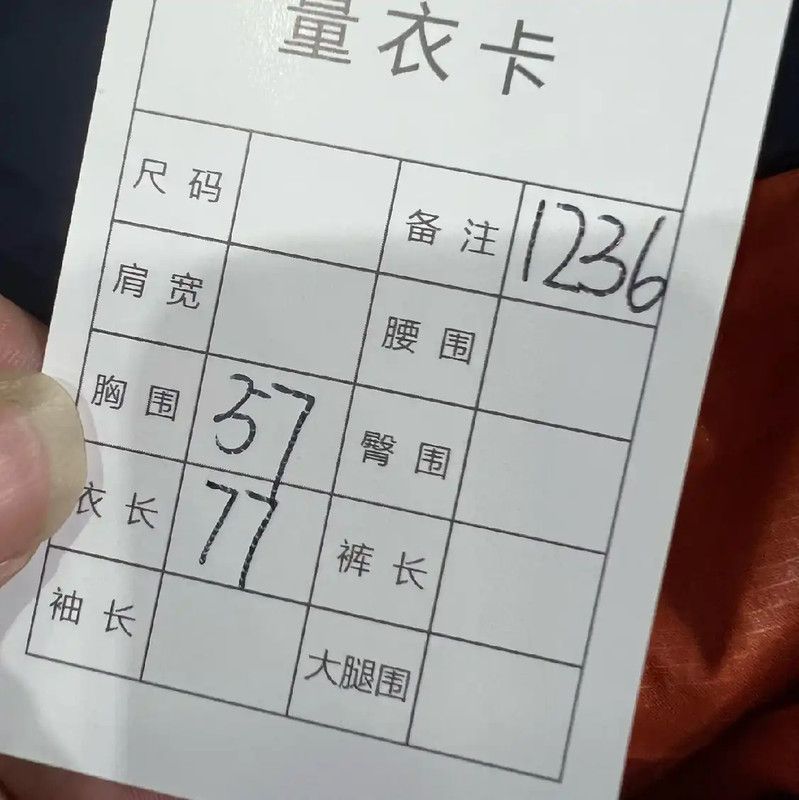 量衣卡
尺码 备注 1236
肩宽 腰围
胸围 57 臀围
衣长 77 裤长
袖长 大腿围